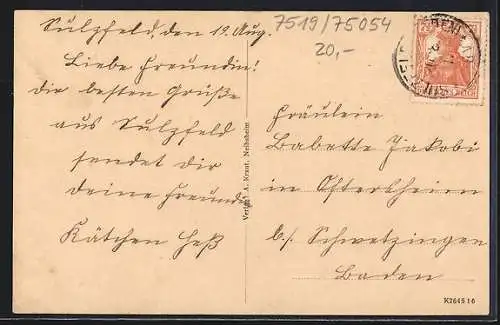 Sulzfeld, den 19. Aug.
Liebe Freundin!
die besten Grüße
aus Sulzfeld
sendet dir
deine Freundin
Kätchen Heß
7519/75054
20,-
Fräulein
Babette Jakobi
in Oftersheim
b/. Schwetzingen
Baden
Verlag: A. Kraut, Neibsheim
K7645 16